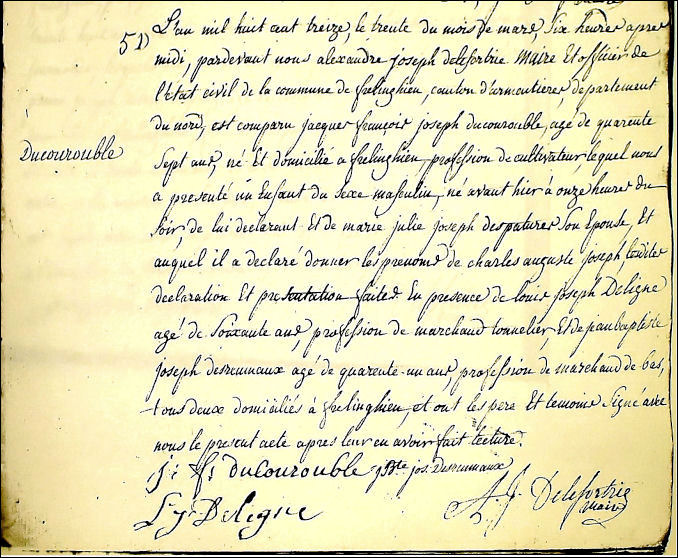 51)
L'an mil huit cent treize, le trente du mois de mars, Six heures apres
midi, pardevant nous alexandre joseph delefortrie Maire Et officier de
l'Etat civil de la commune de frelinghien, canton d'armentieres, departement
du nord, est comparu jacques françois joseph ducourouble, agé de quarente
Ducourouble
Sept ans, né Et domicilié a frelinghien, profession de cultivateur, lequel nous
a presenté un Enfant du Sexe masculin, né avant hier à onze heures du
Soir, de lui declarant Et de marie julie joseph despatures Son Epouse, Et
auquel il a declaré donner les prenoms de charles auguste joseph, lesdites
declaration Et presentation faites En presence de louis joseph Deligne
agé de Soixante ans, profession de marchand tonnelier, Et de jean baptiste
joseph desreumaux agé de quarente un ans, profession de marchand de bas,
tous deux domiciliés à frelinghien, et ont les pere Et temoins Signé avec
nous le present acte apres leur en avoir fait lecture.
j: fs ducourouble jBte jos. Desreumaux
L j Deligne
A. J. Delefortrie
Maire